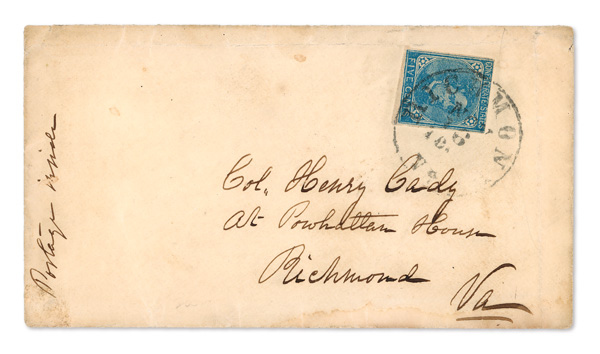 FIVE CENTS
MON
Col. Henry Cady
At Powhattan House
Richmond
Va
Postage inside